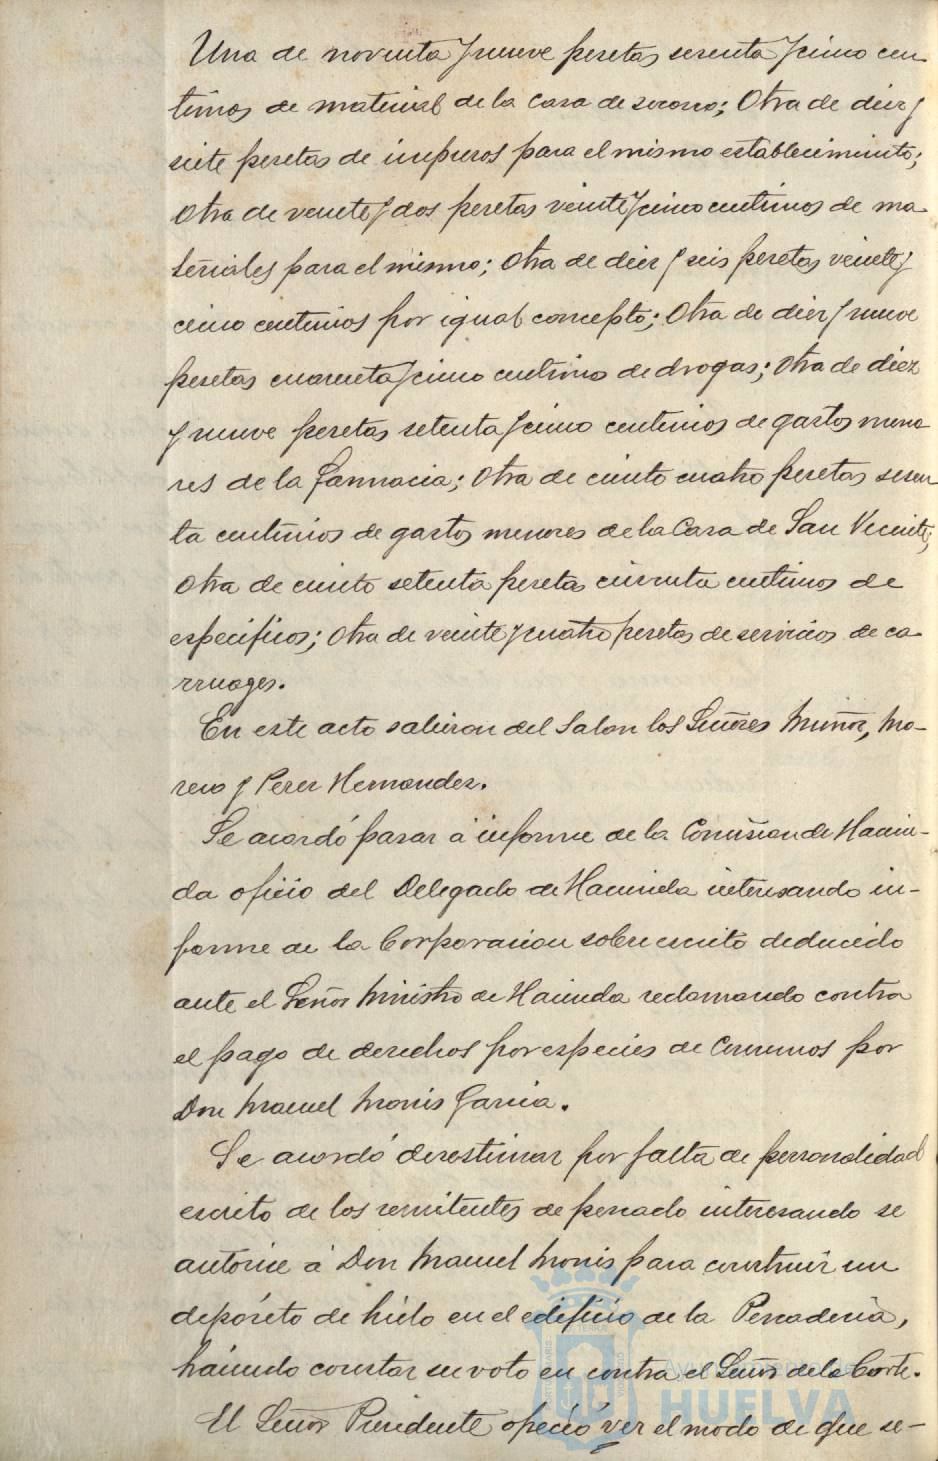 Una de noventa y nueve pesetas sesenta y cinco cen-
timos de material de la casa de socorro; Otra de diez y
siete pesetas de impresos para el mismo establecimiento;
Otra de veinte y dos pesetas veinte y cinco centimos de ma-
teriales para el mismo; Otra de diez y seis pesetas veinte y
cinco centimos por igual concepto; Otra de diez y nueve
pesetas cuarenta y cinco centimos de drogas; Otra de diez
y nueve pesetas setenta y cinco centimos de gastos meno-
res de la farmacia; Otra de ciento cuatro pesetas sesen-
ta centimos de gastos menores de la Casa de San Vicente;
Otra de ciento setenta pesetas cincuenta centimos de
especificos; Otra de veinte y cuatro pesetas de servicios de ca-
rruages.
En este acto salieron del Salon los Señores Muñoz, Mo-
reno y Perez Hernandez.
Se acordó pasar á informe de la Comision de Hacien-
da oficio del Delegado de Hacienda interesando in-
forme de la Corporacion sobre escrito deducido
ante el Señor Ministro de Hacienda reclamando contra
el pago de derechos por especies de Consumos por
Don Manuel Monis Garcia.
Se acordó desestimar por falta de personalidad
escrito de los remitentes de pescado interesando se
autorice á Don Manuel Monis para construir un
depósito de hielo en el edificio de la Pescaderia,
haciendo constar su voto en contra el Señor de la Corte.
El Señor Presidente ofreció ver el modo de que se-
Ayuntamiento de
HUELVA